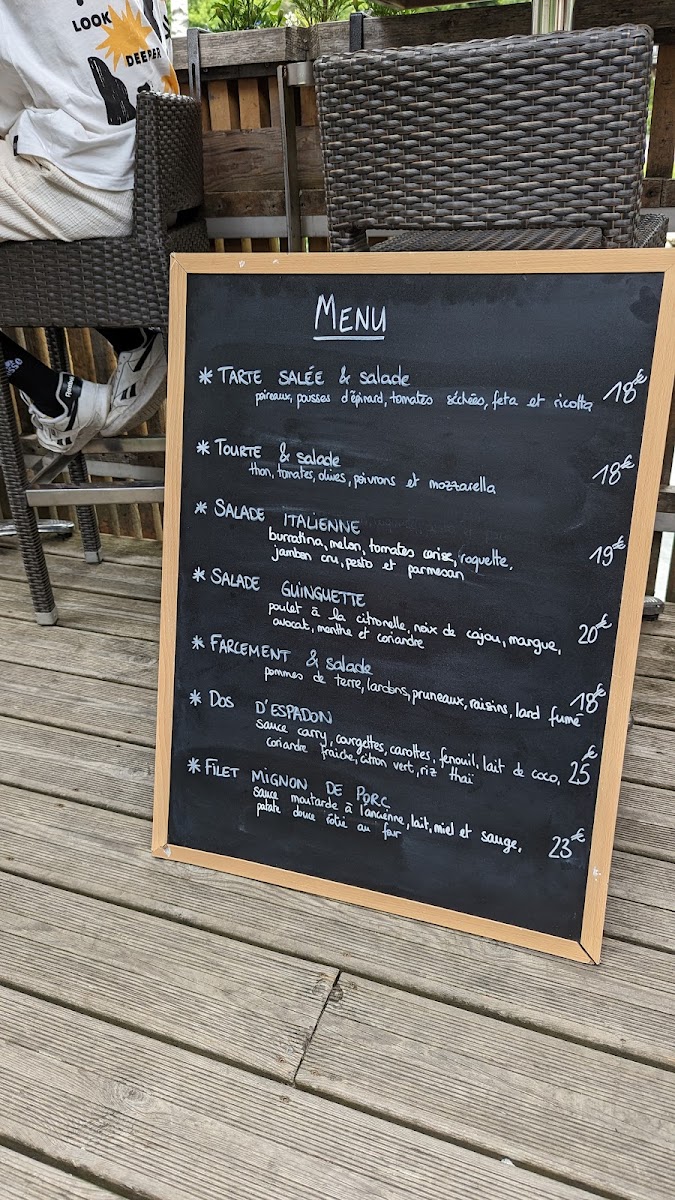 LOOK
DEEPER
Reebok
MENU
* TARTE SALÉE & salade
poireaux, pousses d'épinard, tomates séchées, feta et ricotta 18€
* TOURTE & salade
thon, tomates, olives, poivrons et mozzarella 18€
* SALADE ITALIENNE
burratina, melon, tomates cerise, roquette,
jambon cru, pesto et parmesan 19€
* SALADE GUINGUETTE
poulet à la citronelle, noix de cajou, mangue,
avocat, menthe et coriandre 20€
* FARCEMENT & salade
pommes de terre, lardons, pruneaux, raisins, lard fumé 18€
* DOS D'ESPADON
sauce curry, courgettes, carottes, fenouil, lait de coco,
coriandre fraîche, citron vert, riz thaï 25€
* FILET MIGNON DE PORC
sauce moutarde à l'ancienne, lait, miel et sauge,
patate douce rôtie au four 23€